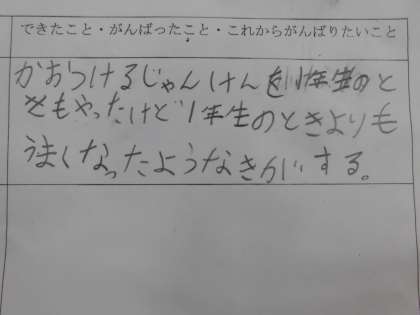 できたこと・がんばったこと・これからがんばりたいこと
かおつけるじゃんけんを1年生のと
きもやったけど1年生のときよりも
うまくなったようなきがする。